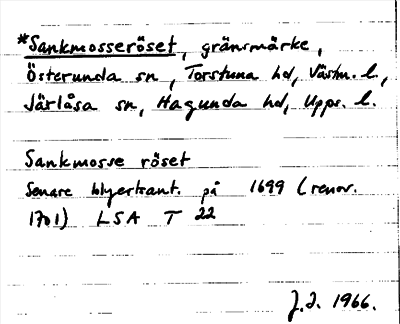 *Sankmosseröset, gränsmärke,
Österunda sn, Torstuna hd, Västm. l.,
Järlåsa sn, Hagunda hd, Upps. l.
Sankmosse röset
Senare blyertsant. på 1699 (renov.
1701) LSA T 22
J.I. 1966.